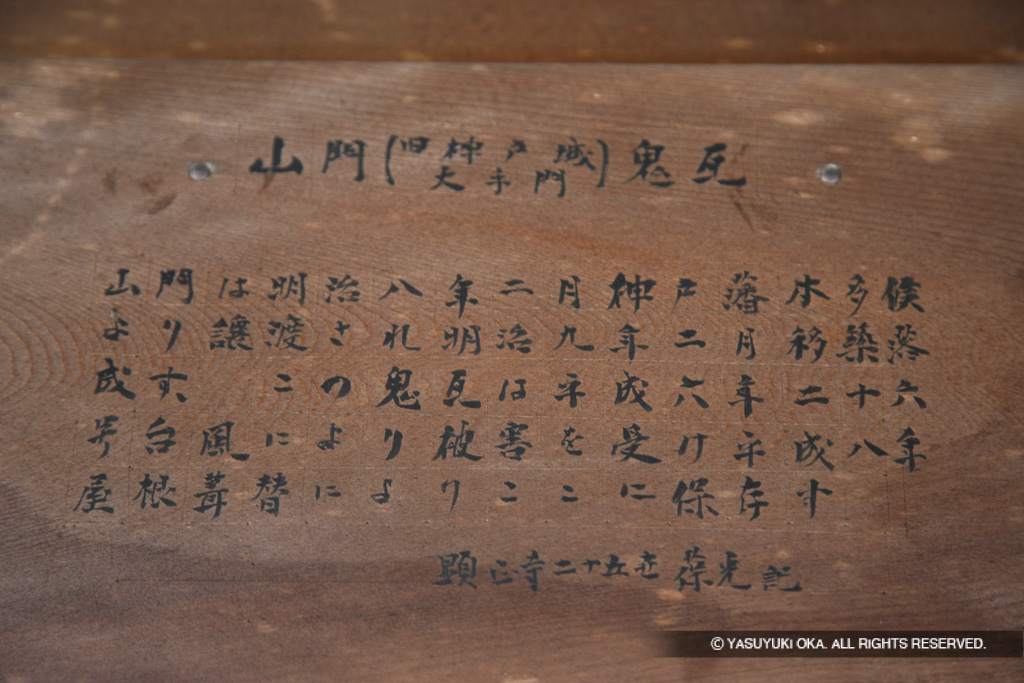 山門(旧神戸城大手門)鬼瓦
山門は明治八年二月神戸藩本多侯
より譲渡され明治九年二月移築落
成す この鬼瓦は平成六年二十六
号台風により被害を受け平成八年
屋根葺替によりここに保存す
顕正寺二十五世 葆光記
© YASUYUKI OKA. ALL RIGHTS RESERVED.